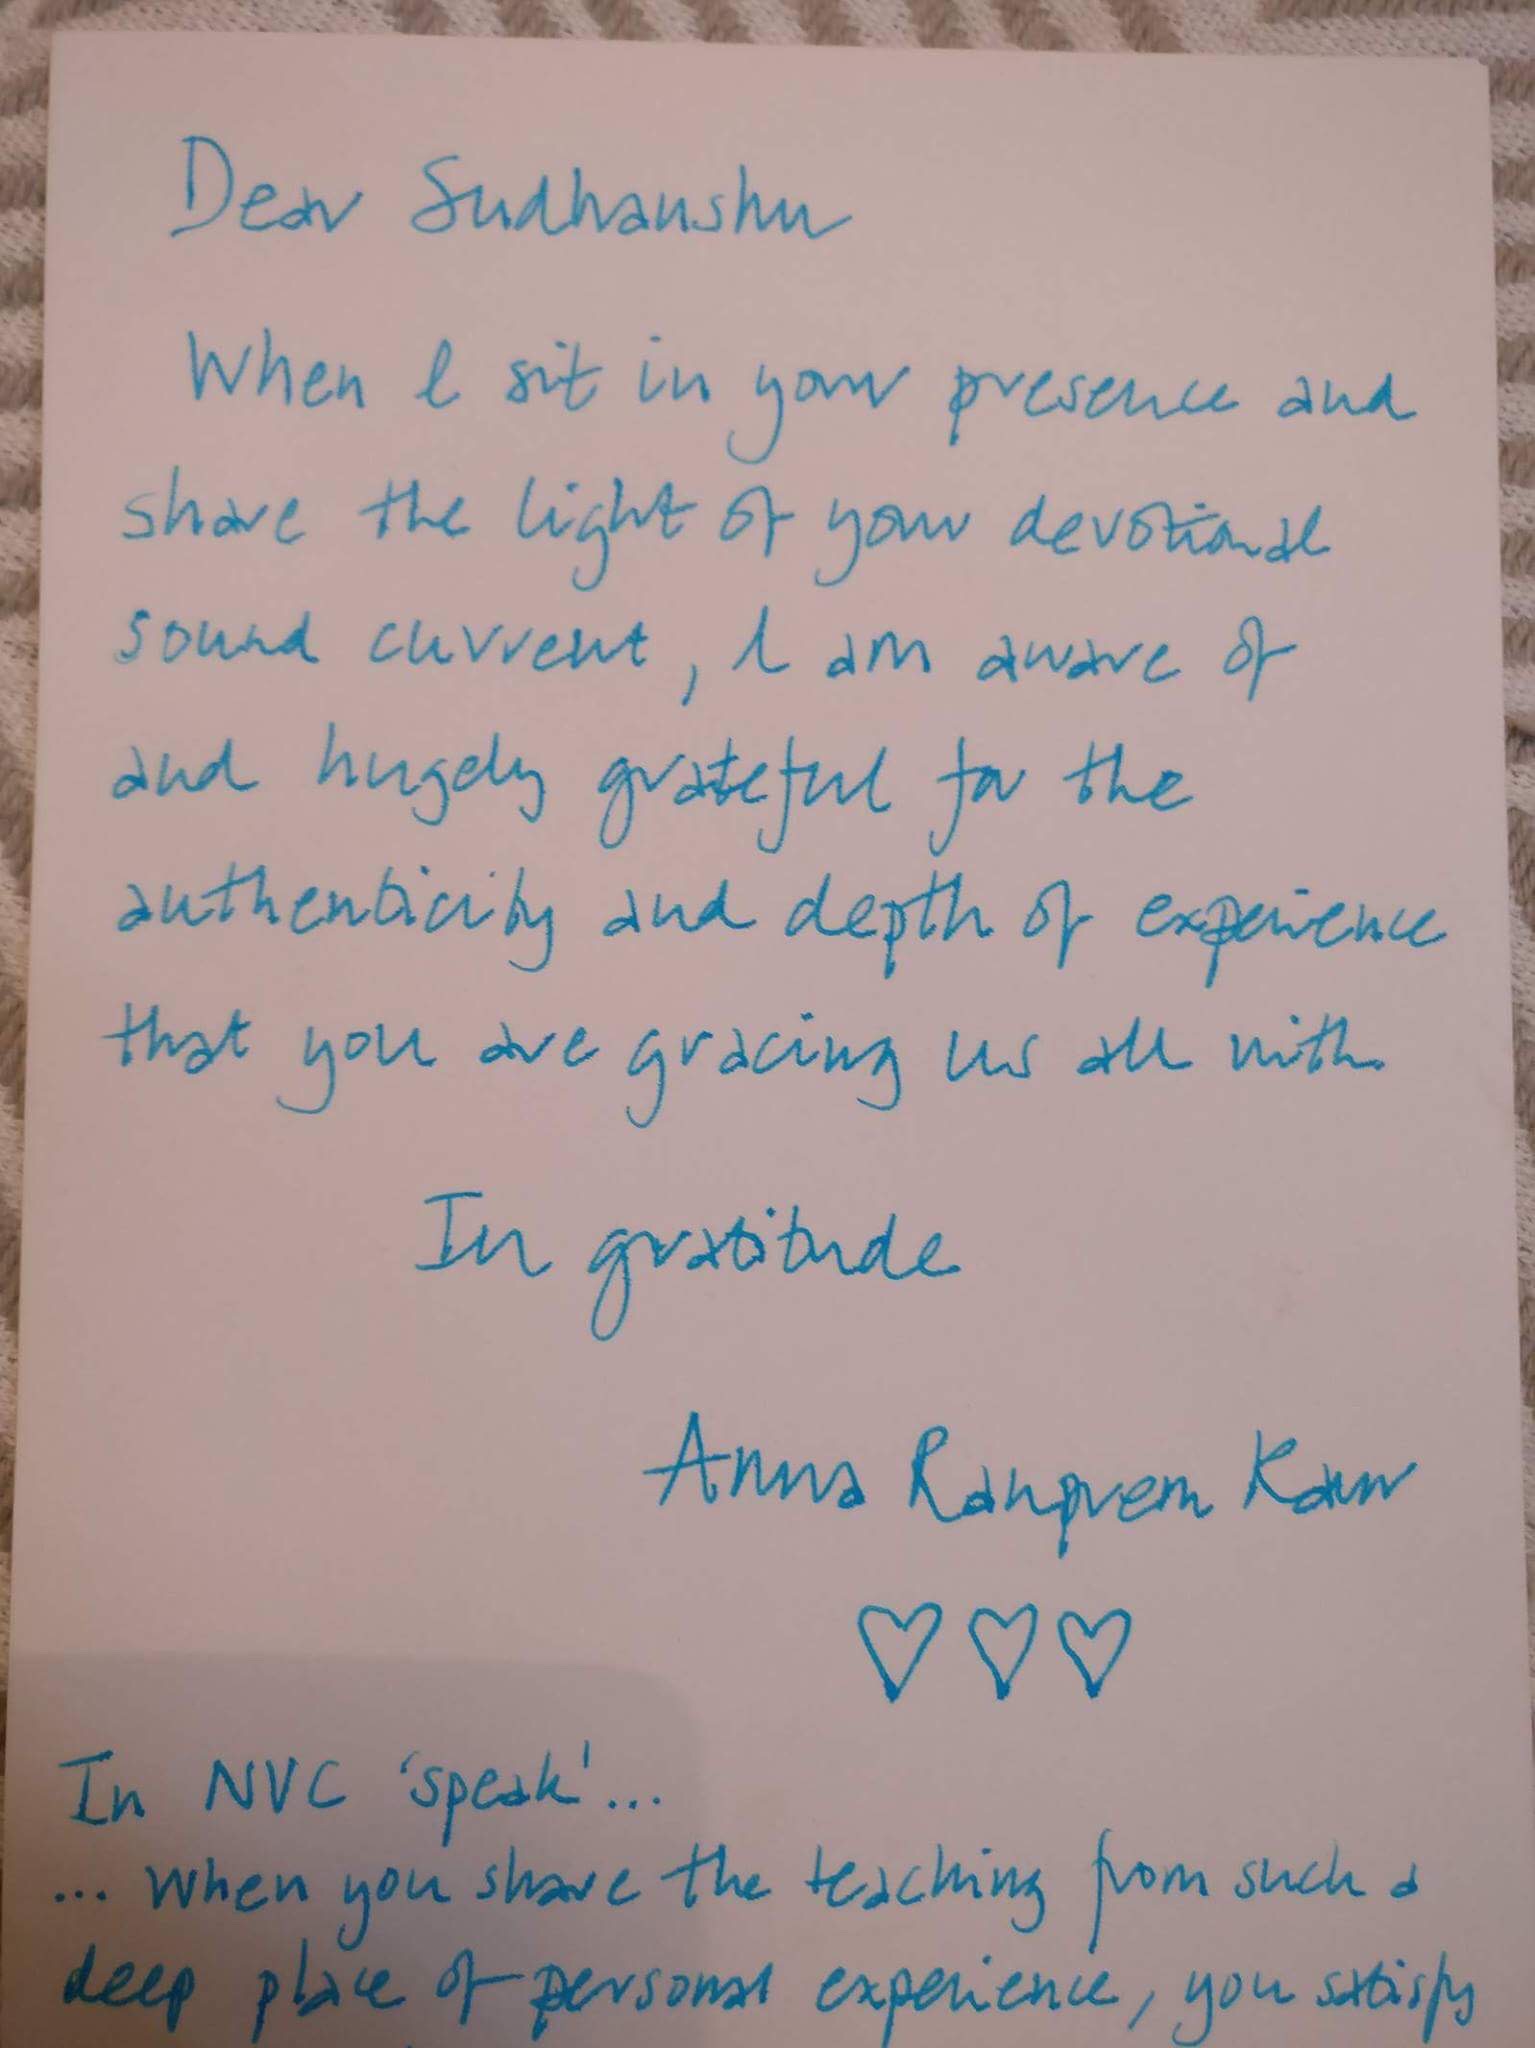 Dear Sudhanshu
When I sit in your presence and
share the light of your devotional
sound current, I am aware of
and hugely grateful for the
authenticity and depth of experience
that you are gracing us all with.
In gratitude
Anna Ranprem Kaur
In NVC 'speak'...
... when you share the teaching from such a
deep place of personal experience, you satisfy